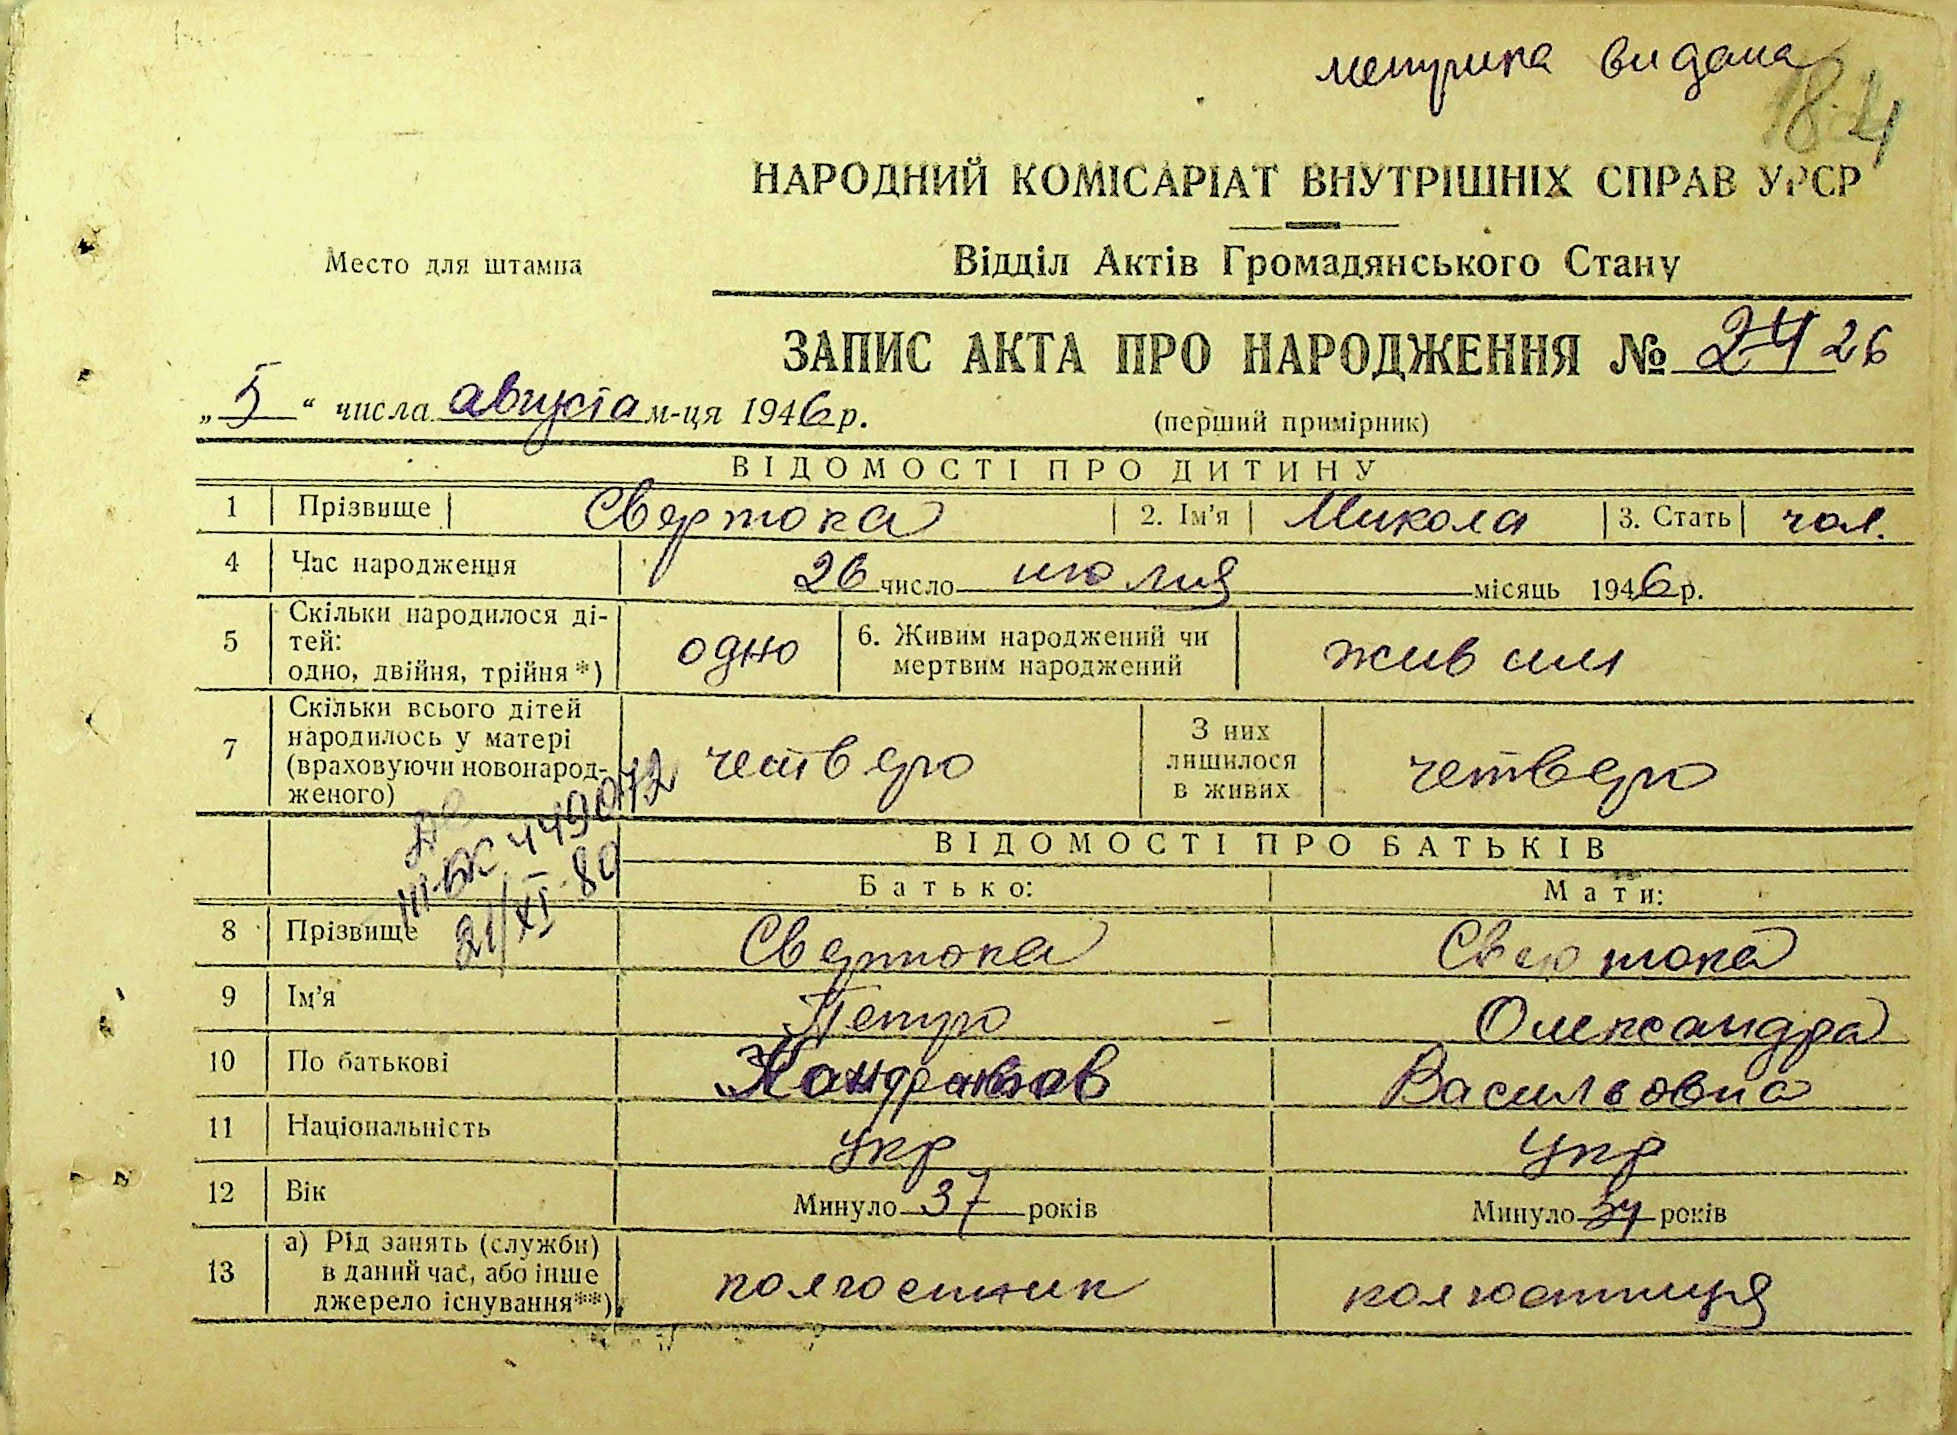 метрика видана
184
НАРОДНИЙ КОМІСАРІАТ ВНУТРІШНІХ СПРАВ УРСР
Место для штампа
Відділ Актів Громадянського Стану
ЗАПИС АКТА ПРО НАРОДЖЕННЯ № 24 26
„5“ числа августа м-ця 1946 р.
(перший примірник)
ВІДОМОСТІ ПРО ДИТИНУ
1 Прізвище Свертока 2. Ім'я Микола 3. Стать чол.
4 Час народження 26 число июлия місяць 1946 р.
5 Скільки народилося ді-
тей:
одно, двійня, трійня *) одно 6. Живим народжений чи
мертвим народжений живим
7 Скільки всього дітей
народилось у матері
(враховуючи новонарод-
женого) четверо З них
лишилося
в живих четверо
III-БК 449072
21/XI-80
ВІДОМОСТІ ПРО БАТЬКІВ
Батько: Мати:
8 Прізвище Свертока Свертока
9 Ім'я Петро Олександра
10 По батькові Кондратов Васильовна
11 Національність укр укр
12 Вік Минуло 37 років Минуло 34 років
13 а) Рід занять (служби)
в даний час, або інше
джерело існування**) колгостник колгостниця